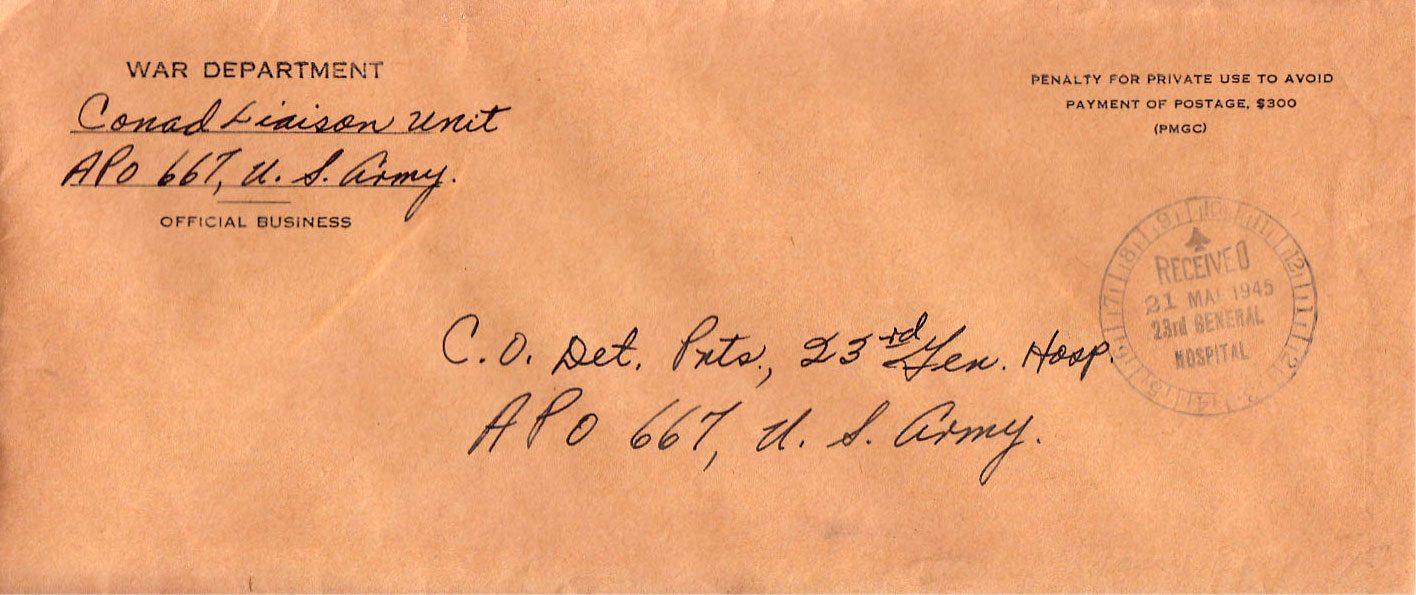 WAR DEPARTMENT
Conad Liaison Unit
APO 667, U. S. Army.
OFFICIAL BUSINESS
PENALTY FOR PRIVATE USE TO AVOID
PAYMENT OF POSTAGE, $300
(PMGC)
9 10 11 12 1 2 3 4 5 6 7 8
RECEIVED
21 MAR 1945
23rd GENERAL
HOSPITAL
C. O. Det. Pnts., 23rd Gen. Hosp.
APO 667, U. S. Army.